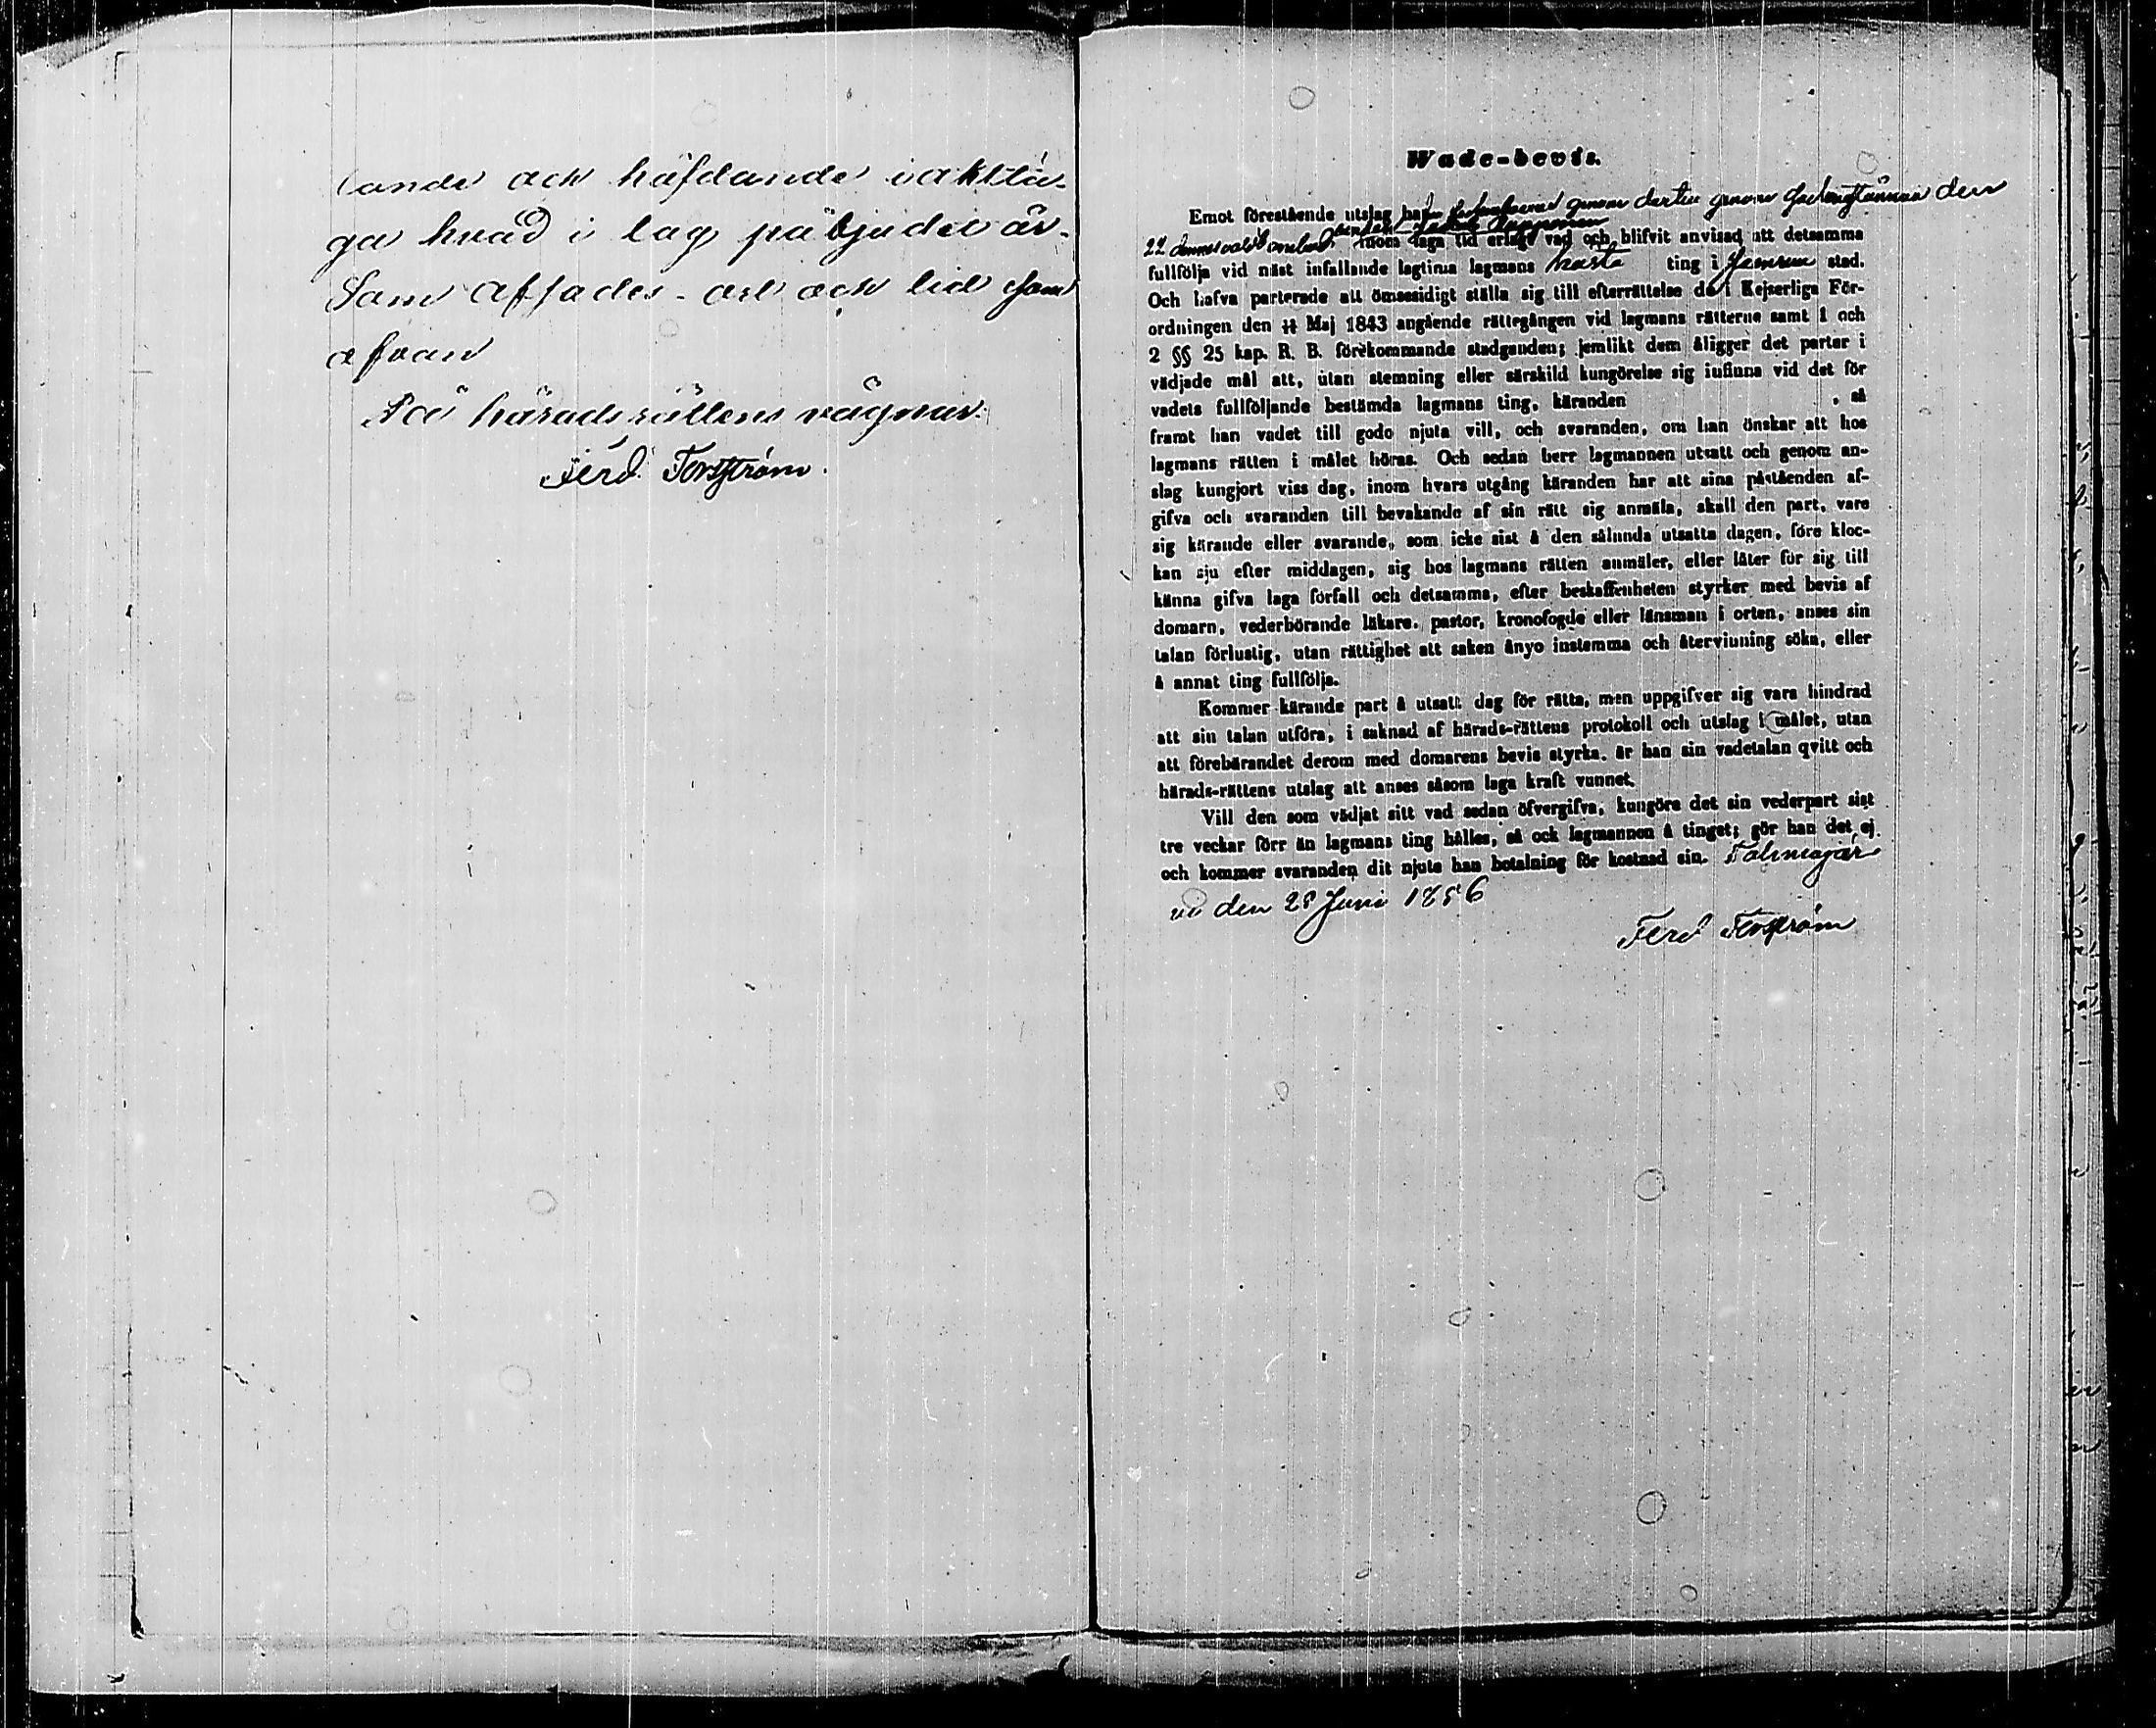 lande och häfdande iaktta-
ga hvad i lag påbjudet är.
Som afsades. ort och tid som
ofvan
På häradsrättens vägnar:
Ferd Forsström.
Wade-bevis.
Emot förestående utslag har genom den
22 inom laga tid erlagt vad och blifvit anvisad att detsamma
fullfölja vid näst infallande lagtima lagmans hösta ting i stad.
Och hafva parterade att ömsesidigt ställa sig till efterrättelse de i Kejserliga För-
ordningen den 11 Maj 1843 angående rättegången vid lagmans rätterne samt 1 och
2 §§ 25 kap. R. B. förekommande stadganden; jemlikt dem åligger det parter i
vädjade mål att, utan stemning eller särskild kungörelse sig infinna vid det för
vadets fullföljande bestämda lagmans ting, käranden , så
framt han vadet till godo njuta vill, och svaranden, om han önskar att hos
lagmans rätten i målet höras. Och sedan herr lagmannen utsatt och genom an-
slag kungjort viss dag, inom hvars utgång käranden har att sina påståenden af-
gifva och svaranden till bevakande af sin rätt sig anmäla, skall den part, vare
sig kärande eller svarande, som icke sist å den sålunda utsatta dagen, före kloc-
kan sju efter middagen, sig hos lagmans rätten anmäler, eller låter för sig till
känna gifva laga förfall och detsamma, efter beskaffenheten styrker med bevis af
domarn, vederbörande läkare, pastor, kronofogde eller länsman i orten, anses sin
talan förlustig, utan rättighet att saken ånyo instemma och återvinning söka, eller
å annat ting fullfölja.
Kommer kärande part å utsatt dag för rätta, men uppgifver sig vara hindrad
att sin talan utföra, i saknad af härads-rättens protokoll och utslag i målet, utan
att förebärandet derom med domarens bevis styrka, är han sin vadetalan qvitt och
härads-rättens utslag att anses såsom laga kraft vunnet.
Vill den som vädjat sitt vad sedan öfvergifva, kungöre det sin vederpart sist
tre veckar förr än lagmans ting hålles, så ock lagmannen å tinget; gör han det ej
och kommer svaranden dit njute han betalning för kostnad sin. Tohmajär
vi den 28 Juni 1856
Ferd Forsström